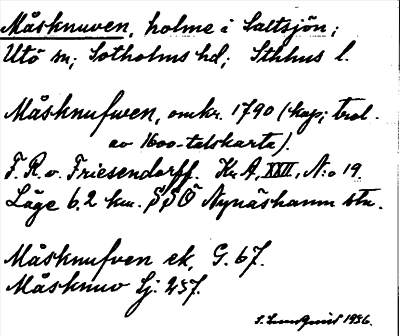 Måsknuven, holme i Saltsjön;
Utö sn; Sotholms hd; Sthlms l.
Måsknufwen, omkr. 1790 (kop; trol.
av 1600-talskarta).
F. R. v. Friesendorff. Kr A, XXII, N:o 19
Läge 6.2 km. SSO Nynäshamn stn.
Måsknufven ek, G. 67.
Måsknuv Sj: 257.
S. Lundquist 1936.